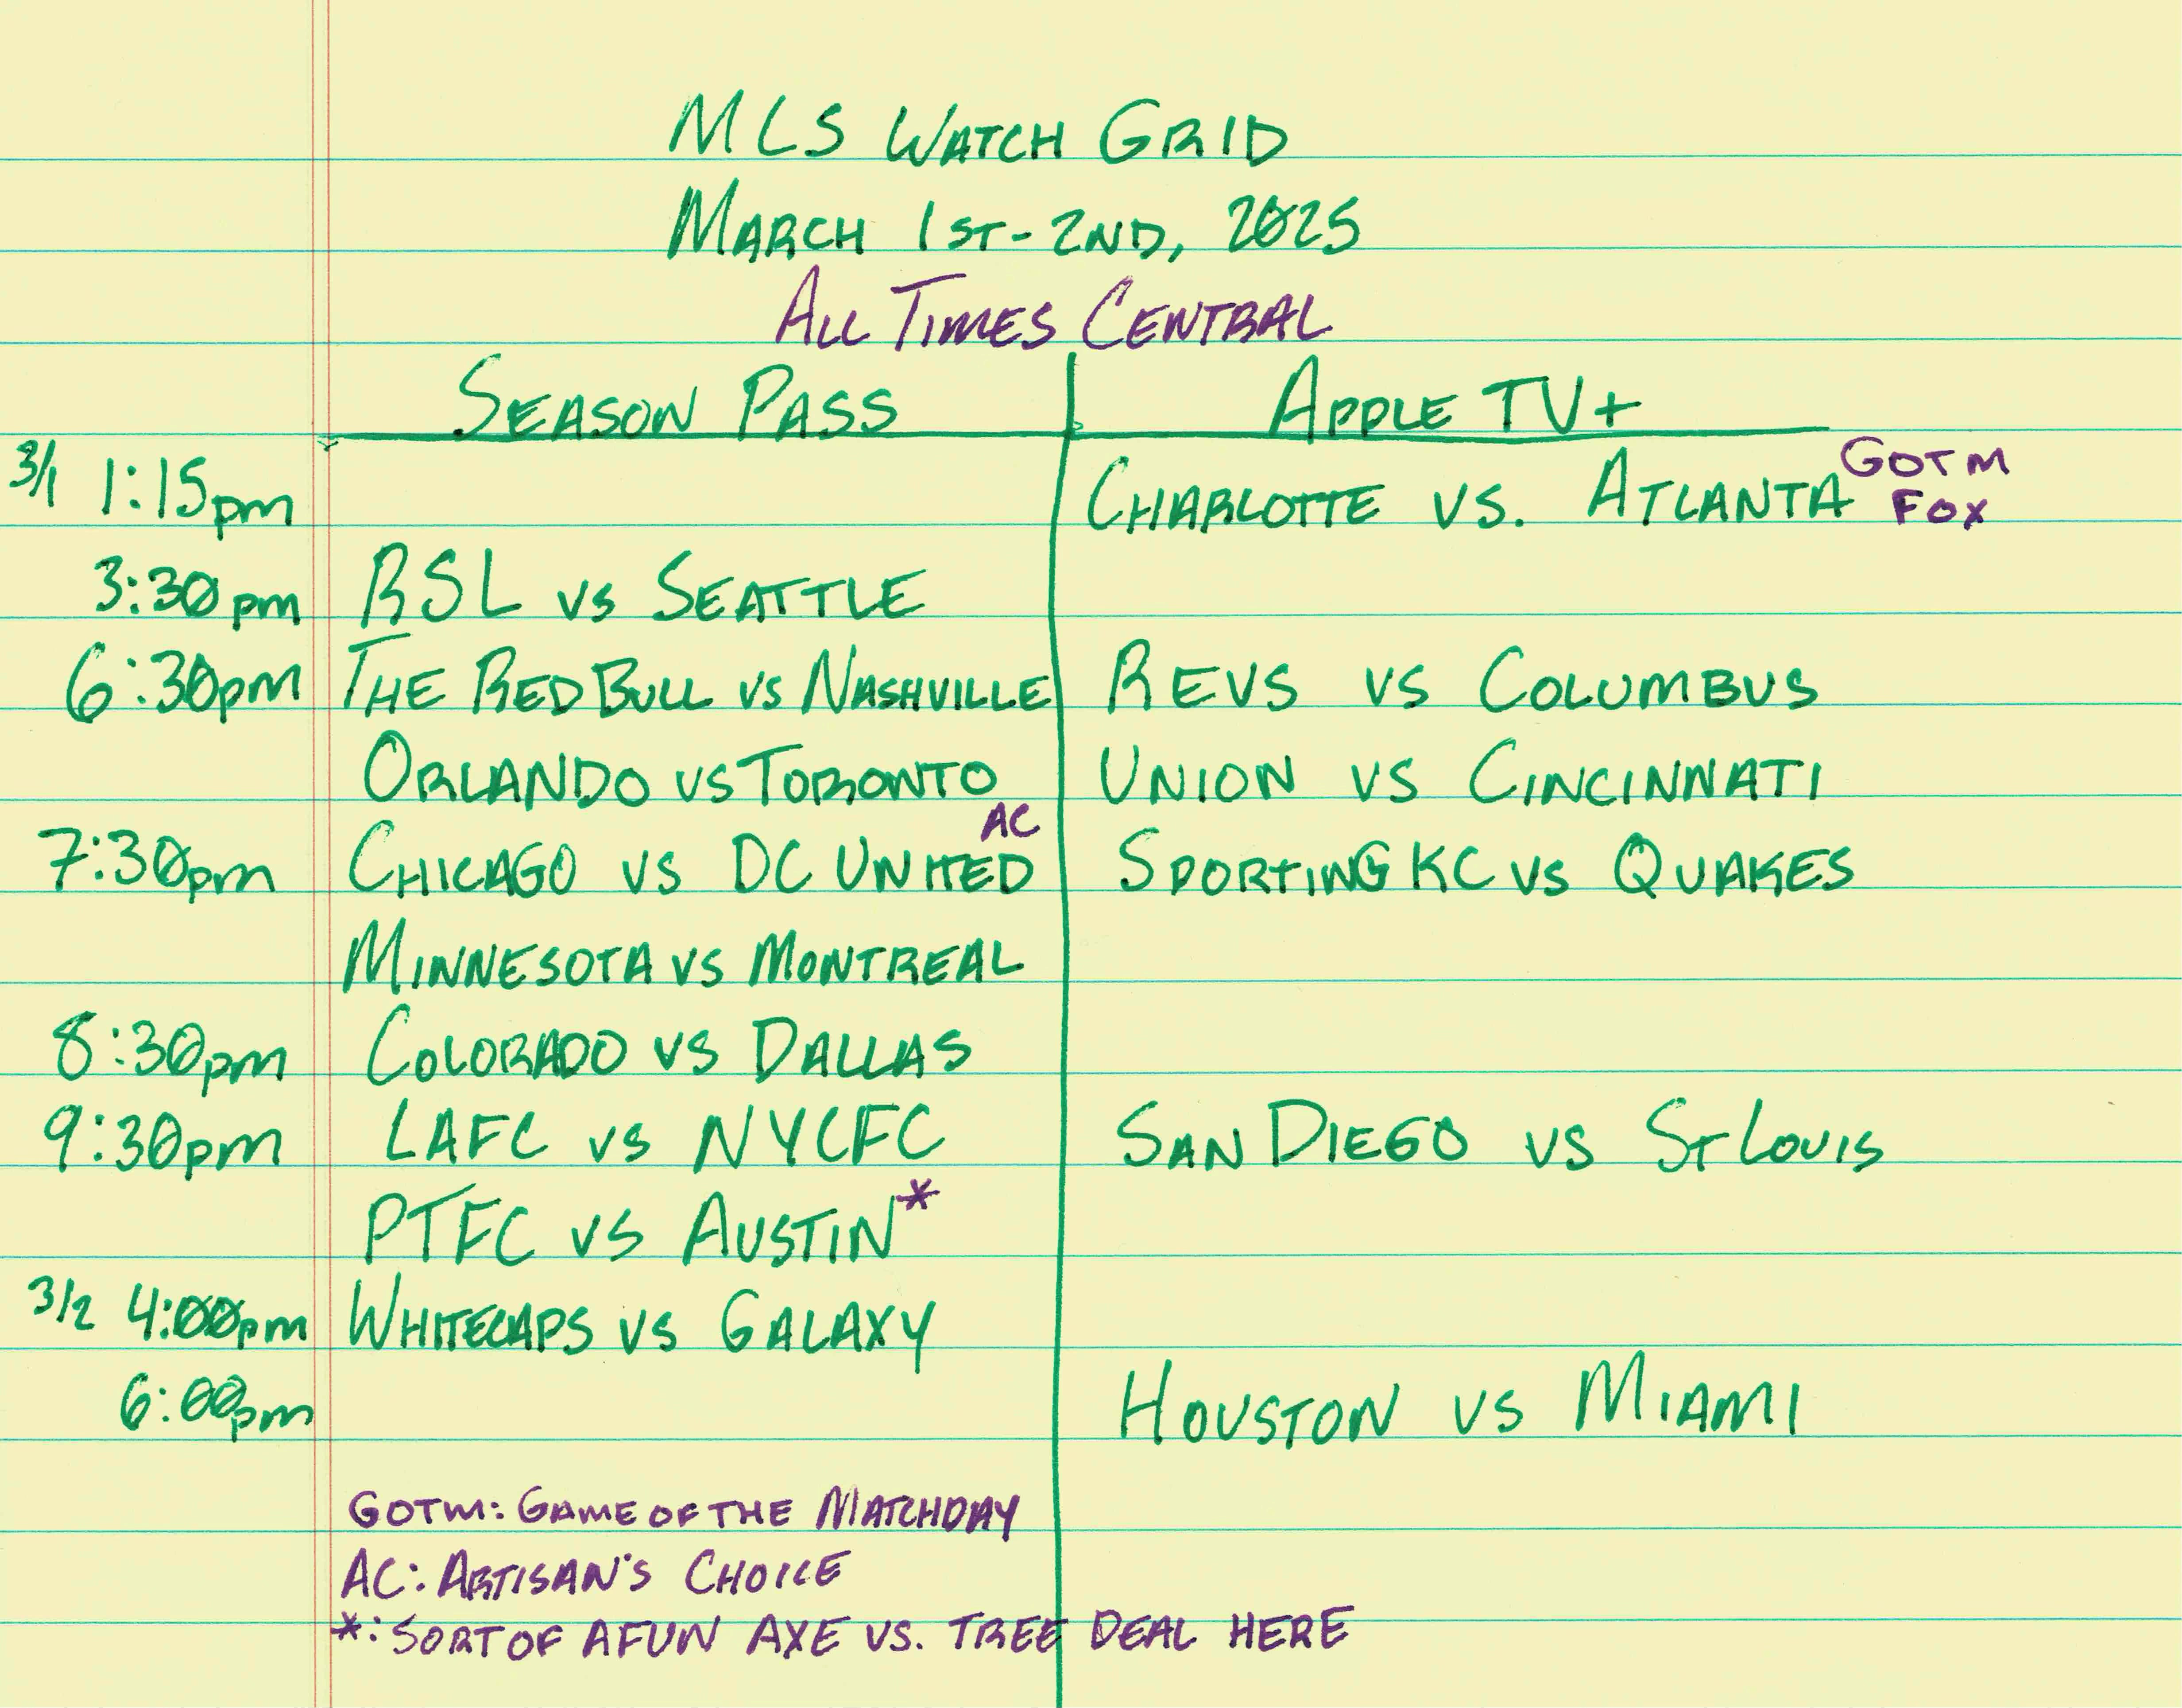 MLS WATCH GRID
MARCH 1ST-2ND, 2025
ALL TIMES CENTRAL
SEASON PASS APPLE TV+
3/1 1:15pm CHARLOTTE VS. ATLANTA GOTM FOX
3:30pm RSL VS SEATTLE
6:30pm THE RED BULL VS NASHVILLE REVS VS COLUMBUS
ORLANDO VS TORONTO UNION VS CINCINNATI
7:30pm CHICAGO VS DC UNITED AC SPORTING KC VS QUAKES
MINNESOTA VS MONTREAL
8:30pm COLORADO VS DALLAS
9:30pm LAFC VS NYCFC SAN DIEGO VS ST LOUIS
PTFC VS AUSTIN*
3/2 4:00pm WHITECAPS VS GALAXY
6:00pm HOUSTON VS MIAMI
GOTM: GAME OF THE MATCHDAY
AC: ARTISAN'S CHOICE
*: SORT OF A FUN AXE VS. TREE DEAL HERE